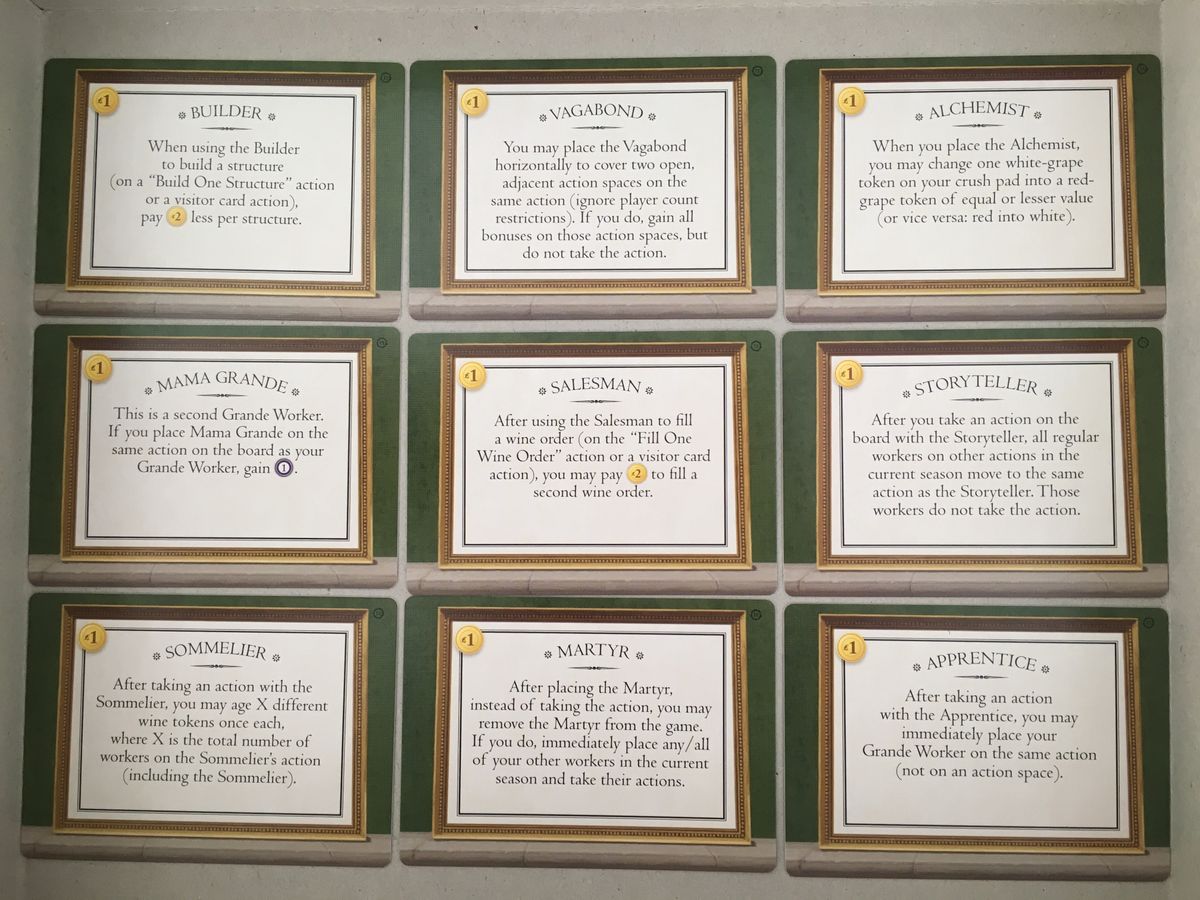 £1
BUILDER
When using the Builder
to build a structure
(on a “Build One Structure” action
or a visitor card action),
pay £2 less per structure.
£1
VAGABOND
You may place the Vagabond
horizontally to cover two open,
adjacent action spaces on the
same action (ignore player count
restrictions). If you do, gain all
bonuses on those action spaces, but
do not take the action.
£1
ALCHEMIST
When you place the Alchemist,
you may change one white-grape
token on your crush pad into a red-
grape token of equal or lesser value
(or vice versa: red into white).
£1
MAMA GRANDE
This is a second Grande Worker.
If you place Mama Grande on the
same action on the board as your
Grande Worker, gain 1.
£1
SALESMAN
After using the Salesman to fill
a wine order (on the “Fill One
Wine Order” action or a visitor card
action), you may pay £2 to fill a
second wine order.
£1
STORYTELLER
After you take an action on the
board with the Storyteller, all regular
workers on other actions in the
current season move to the same
action as the Storyteller. Those
workers do not take the action.
£1
SOMMELIER
After taking an action with the
Sommelier, you may age X different
wine tokens once each,
where X is the total number of
workers on the Sommelier’s action
(including the Sommelier).
£1
MARTYR
After placing the Martyr,
instead of taking the action, you may
remove the Martyr from the game.
If you do, immediately place any/all
of your other workers in the current
season and take their actions.
£1
APPRENTICE
After taking an action
with the Apprentice, you may
immediately place your
Grande Worker on the same action
(not on an action space).